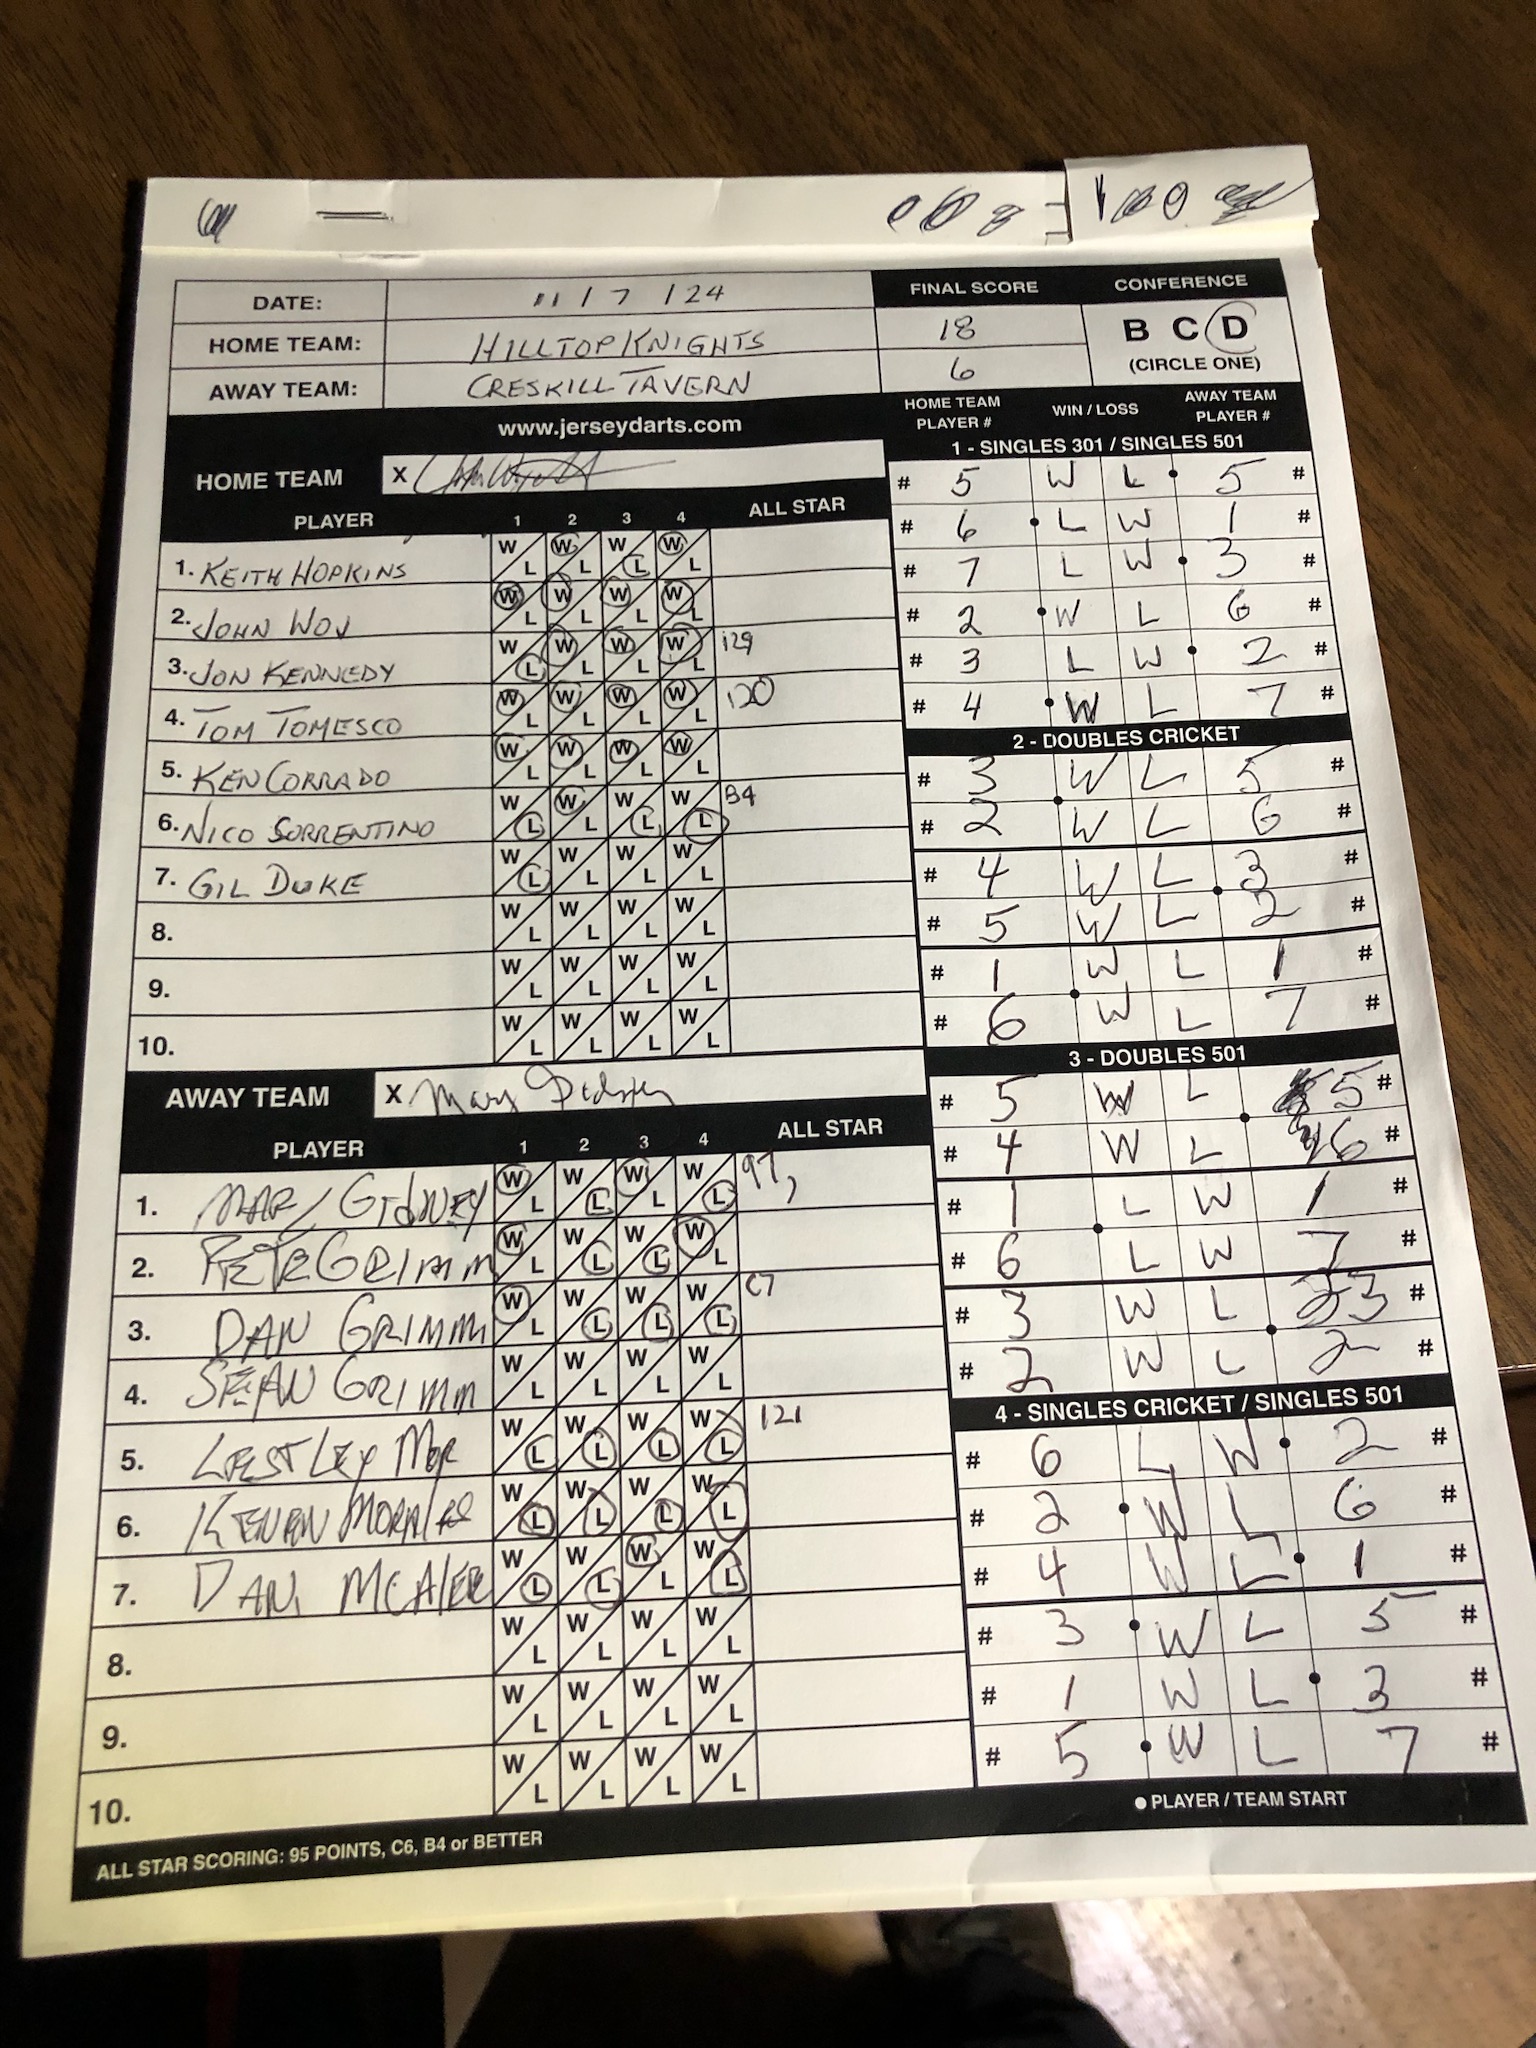 DATE: 11/7/24
HOME TEAM: HILLTOP KNIGHTS
AWAY TEAM: CRESKILL TAVERN
FINAL SCORE
18
6
CONFERENCE
B C D
(CIRCLE ONE)
www.jerseydarts.com
HOME TEAM X
PLAYER 1 2 3 4 ALL STAR
1. KEITH HOPKINS W L W L W L W L
2. JOHN WOJ W L W L W L W L
3. JON KENNEDY W L W L W L W L 129
4. TOM TOMESCO W L W L W L W L 120
5. KEN CORRADO W L W L W L W L
6. NICO SORRENTINO W L W L W L W L B4
7. GIL DUKE W L W L W L W L
8. W L W L W L W L
9. W L W L W L W L
10. W L W L W L W L
AWAY TEAM X Mary Gidney
PLAYER 1 2 3 4 ALL STAR
1. MARY GIDNEY W L W L W L W L 97,
2. PETE GRIMM W L W L W L W L
3. DAN GRIMM W L W L W L W L C7
4. SEAN GRIMM W L W L W L W L
5. LESTLEY MOR W L W L W L W L 121
6. MORALES W L W L W L W L
7. DAN MCALEE W L W L W L W L
8. W L W L W L W L
9. W L W L W L W L
10. W L W L W L W L
ALL STAR SCORING: 95 POINTS, C6, B4 or BETTER
HOME TEAM PLAYER # WIN / LOSS AWAY TEAM PLAYER #
1 - SINGLES 301 / SINGLES 501
# 5 W L 5 #
# 6 L W 1 #
# 7 L W 3 #
# 2 W L 6 #
# 3 L W 2 #
# 4 W L 7 #
2 - DOUBLES CRICKET
# 3 W L 5 #
# 2 W L 6 #
# 4 W L 3 #
# 5 W L 2 #
# 1 W L 1 #
# 6 W L 7 #
3 - DOUBLES 501
# 5 W L 5 #
# 4 W L 6 #
# 1 L W 1 #
# 6 L W 7 #
# 3 W L 3 #
# 2 W L 2 #
4 - SINGLES CRICKET / SINGLES 501
# 6 L W 2 #
# 2 W L 6 #
# 4 W L 1 #
# 3 W L 5 #
# 1 W L 3 #
# 5 W L 7 #
PLAYER / TEAM START